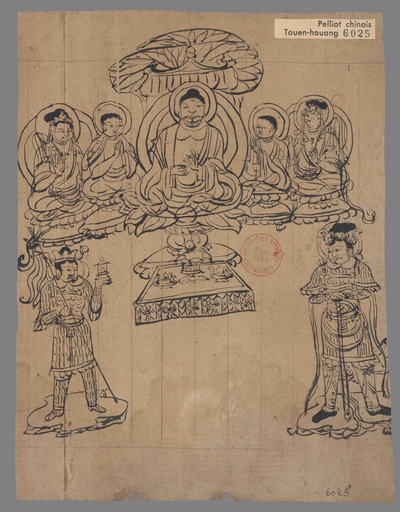 Pelliot chinois
Touen-houang 6025
6025